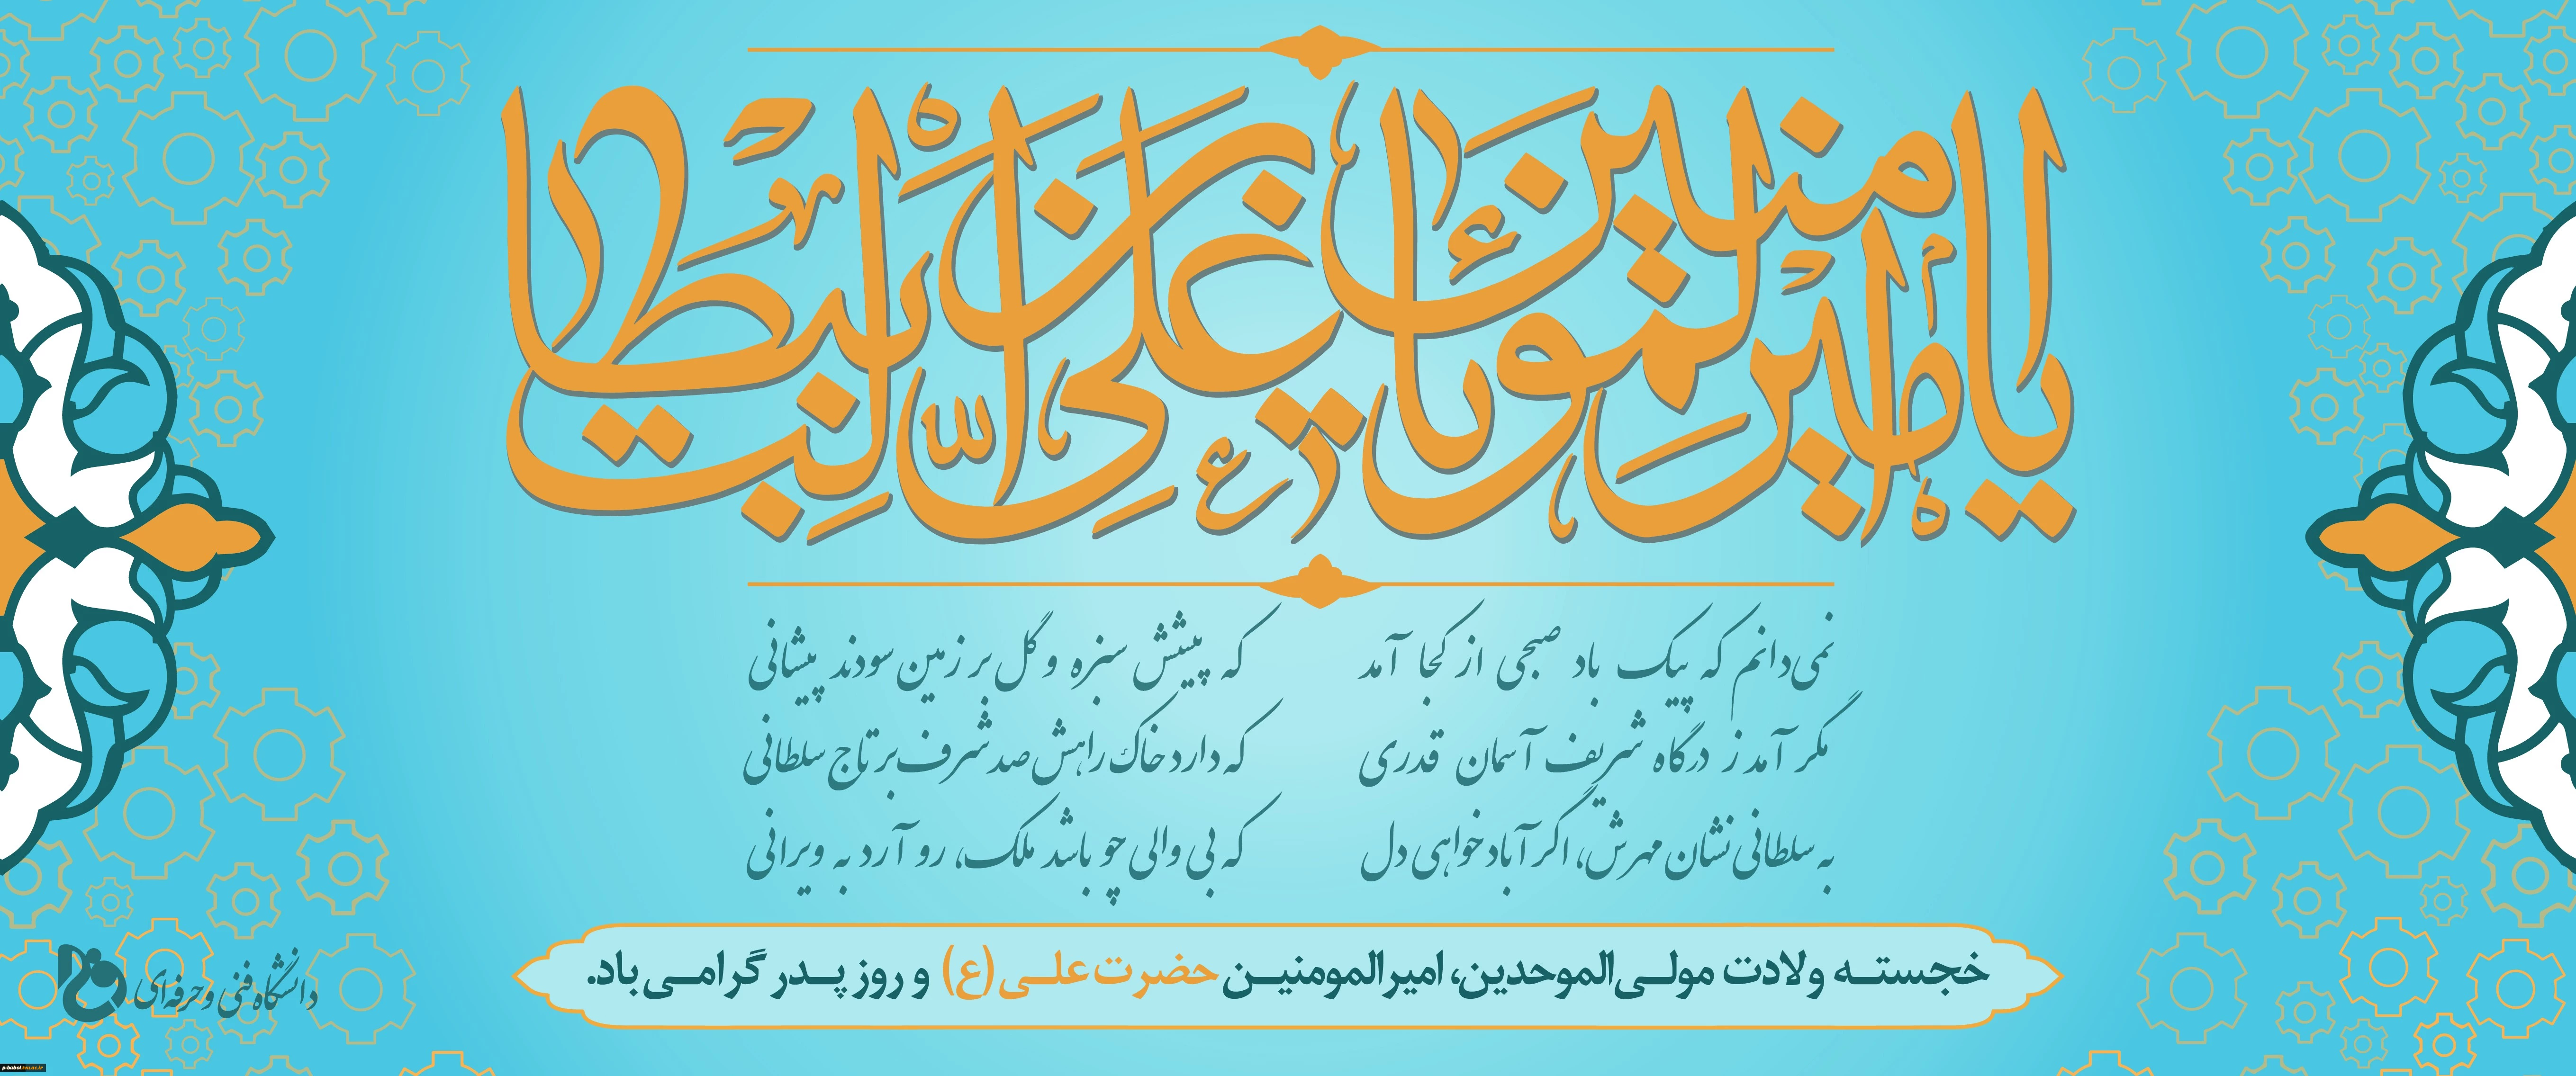 یا امیرالمؤمنین یا علی بن ابیطالب
نمی‌دانم که پیک باد صبحی از کجا آمد که پیشش سبزه و گل بر زمین سودند پیشانی
مگر آمد ز درگاه شریف آسمان قدری که دارد خاک راهش صد شرف بر تاج سلطانی
به سلطانی نشان مهرش، اگر آباد خواهی دل که بی والی چو باشد ملک، رو آرد به ویرانی
خجسته ولادت مولی‌الموحدین، امیرالمومنین حضرت علی (ع) و روز پدر گرامی باد.
دانشگاه فنی و حرفه‌ای
p-babol.tvu.ac.ir